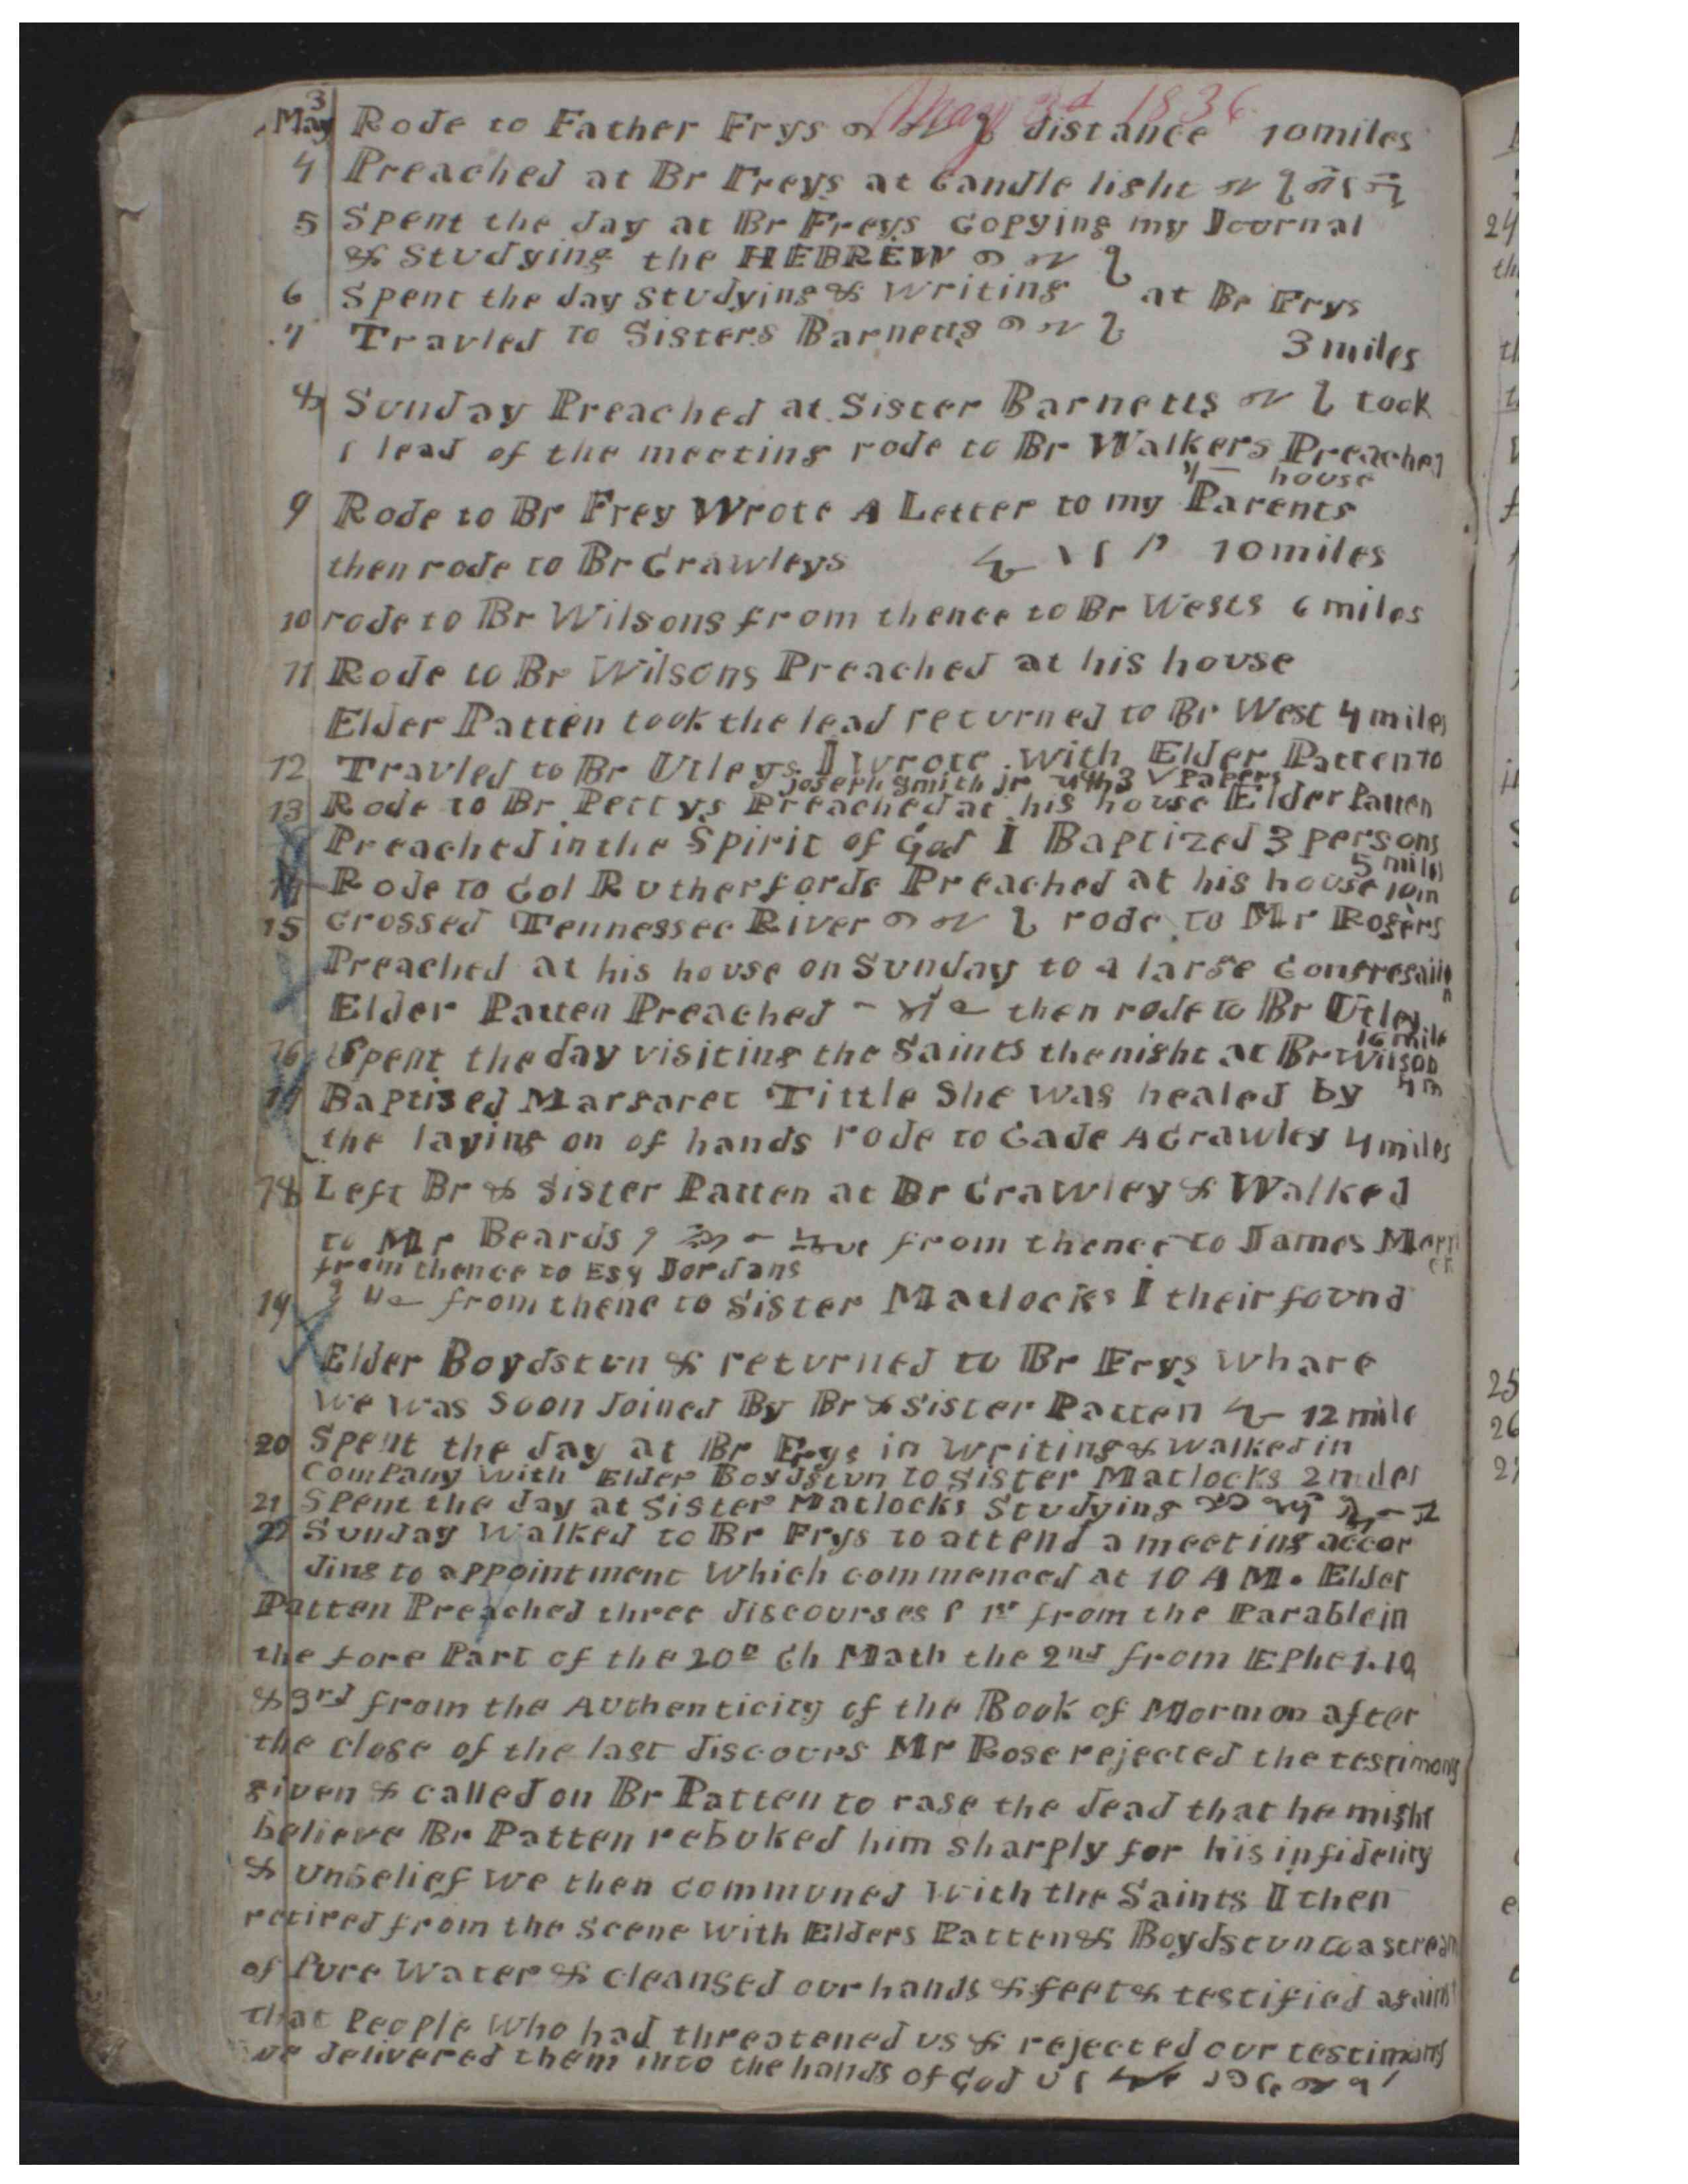 May 3d 1836
May 3 Rode to Father Frys distance 10 miles
4 Preached at Br Freys at Candle light
5 Spent the day at Br Freys Copying my Journal
& Studying the HEBREW
6 Spent the day Studying & Writing at Br Frys
7 Travled to Sisters Barnetts 3 miles
8 Sunday Preached at Sister Barnetts took
lead of the meeting rode to Br Walkers Preached
house
9 Rode to Br Frey Wrote A Letter to my Parents
then rode to Br Crawleys 10 miles
10 rode to Br Wilsons from thence to Br Wests 6 miles
11 Rode to Br Wilsons Preached at his house
Elder Patten took the lead returned to Br West 4 miles
12 Travled to Br Utleys I wrote with Elder Patten to
Joseph Smith Jr 3 Papers
13 Rode to Br Pettys Preached at his house Elder Patten
Preached in the Spirit of God I Baptized 3 persons
5 miles
14 Rode to Col Rutherfords Preached at his house 10 m
15 Crossed Tennessee River rode to Mr Rogers
Preached at his house on Sunday to a large Congregation
Elder Patten Preached then rode to Br Utley
16 mile
16 Spent the day visiting the Saints the night at Br Wilson
4 m
17 Baptised Margaret Tittle She was healed by
the laying on of hands rode to Cade A Crawley 4 miles
18 Left Br & Sister Patten at Br Crawley & Walked
to Mr Beards from thence to James
from thence to Esq Jordans
19 from thenc to Sister Matlocks I their found
Elder Boydstun & returned to Br Frys whare
We was Soon Joined By Br & Sister Patten 12 mile
20 Spent the day at Br Frys in Writing & Walked in
Company With Elder Boydstun to Sister Matlocks 2 miles
21 Spent the day at Sister Matlocks Studying
22 Sunday Walked to Br Frys to attend a meeting accor
ding to appointment Which commenced at 10 A M. Elder
Patten Preached three discourses 1st from the Parable in
the fore Part of the 20th Ch Math the 2nd from Ephe 1.10
& 3rd from the Authenticity of the Book of Mormon after
the close of the last discours Mr Rose rejected the testimony
given & called on Br Patten to rase the dead that he might
believe Br Patten rebuked him sharply for his infidelity
& unbelief We then communed With the Saints I then
retired from the Scene With Elders Patten & Boydstun to a stream
of Pure Water & cleansed our hands & feet & testified against
that People Who had threatened us & rejected our testimony
we delivered them into the hands of God